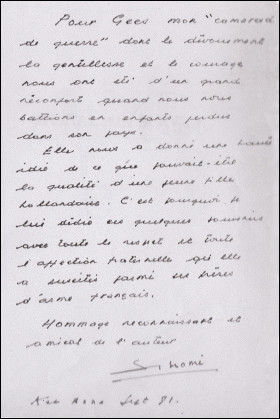 Pour Gees mon "camarade
de guerre" dont le dévouement
la gentillesse et le courage
nous ont été d'un grand
réconfort quand nous nous
battions en enfants perdus
dans son pays.
Elle nous a donné une haute
idée de ce que pouvait-être
la qualité d'une jeune fille
hollandaise. C'est pourquoi je
lui dédie ces quelques souvenirs
avec toute le respect et toute
l'affection fraternelle qu'elle
a suscités parmi ses frères
d'arme français.
Hommage reconnaissant et
amical de l'auteur
Sept 81.